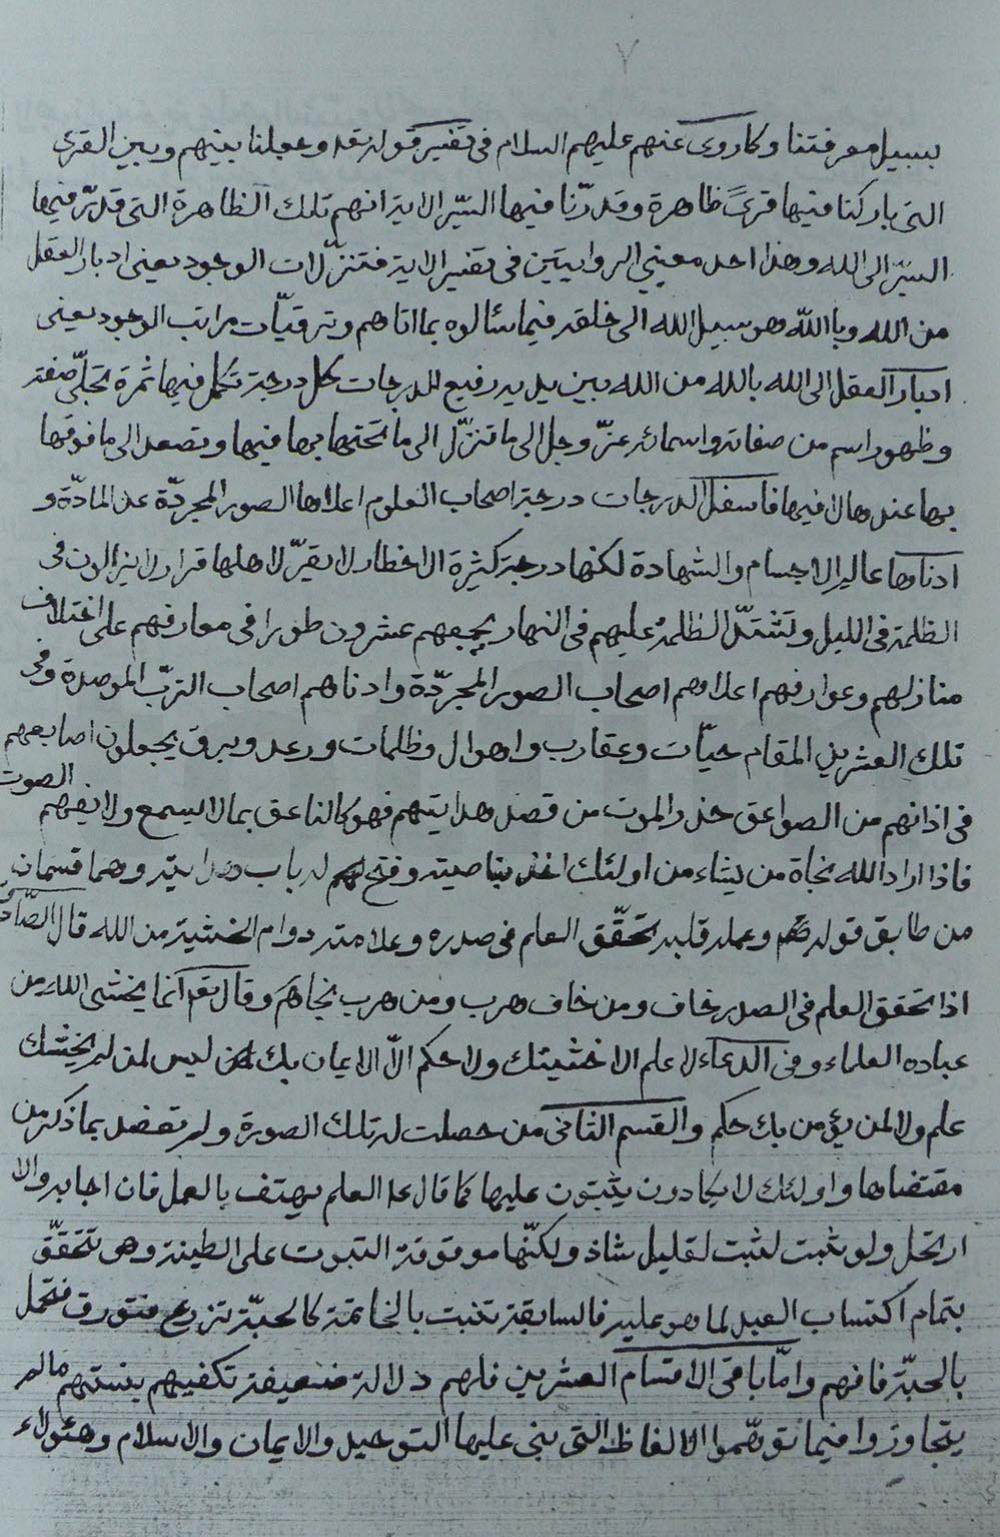 ٧
بسبيل معرفتنا وكما روى عنهم عليهم السلام فى تفسير قوله تعه وجعلنا بينهم وبين القرى
التى باركنا فيها قرىً ظاهرة وقدرّنا فيها السّير الاية انهم تلك الظاهرة التى قدرّ فيها
السّير الى الله وهذا احد معنيى الروايتين فى تفسير الاية فتنزّلات الوجود يعنى ادبار العقل
من الله وبالله وهو سبيل الله الى خلقه فيما سئالوه بما اتاهم وترقيّات مراتب الوجود يعنى
ادبار العقل الى الله بالله من الله بين يديه رفيع الدرجات كل درجة تكمل فيها ثمرة تجلّى صفة
وظهور اسم من صفاته واسمائه عزّ وجل الى ما تنزّل الى ما تحتها بها فيها وتصعد الى ما فوقها
بها عندها لا فيها فاسفل الدرجات درجة اصحاب العلوم اعلاها الصور المجردّة عن المادّة و
ادناها عالم الاجسام والشهادة لكنها درجة كثيرة الاخطار لا يقرّ لاهلها قرار لا يزالون فى
الظلمة فى الليل وتشتدّ الظلمة عليهم فى النهار يجمعهم عشرون طورا فى معارفهم على اختلاف
منازلهم وعوارفهم اعلاهم اصحاب الصور المجردّة وادناهم اصحاب الترب الموصدة وفى
تلك العشرين المقام حيّات وعقارب واهوال وظلمات ورعد وبرق يجعلون اصابعهم
فى اذانهم من الصواعق حذر الموت من قصد هدايتهم فهو كالناعق بما لا يسمع ولا يفهم الصوت
فاذا اراد الله نجاة من يشاء من اولئك اخذ بناصيته وفتح له باب هدايته وهما قسمان
من طابق قوله وعمله قلبه تحقّق العلم فى صدره وعلامته دوام الخشية من الله قال الصّادق
اذا تحقق العلم فى الصدر خاف ومن خاف هرب ومن هرب نجا وقال تعه انما يخشى الله من
عباده العلماء وفى الدعاء لا علم الا خشيتك ولا حكم الاّ الايمان بك ليس لمن لم يخشك
علم ولا لمن لم يؤمن بك حكم والقسم الثانى من حصلت له تلك الصورة ولم تعضد بما ذكر من
مقتضاها واولئك لا يكادون يثبتون عليها كما قال ع العلم يهتف بالعمل فان اجابه والا
ارتحل ولو ثبت لثبت لقليل شاذ ولكنّها موقوفة الثبوت على الطينة وهى تتحقّق
بتمام اكتساب العبد لما هو عليه فالسابقة تثبت بالخاتمة كالحبّة تزرع فتورق فتحمل
بالحبّة فافهم وامّا باقى الاقسام العشرين فلهم دلالة ضعيفة تكفيهم بنسبتهم ما لم
يتجاوزوا فيما توهّموا الالفاظ التى بنى عليها التوحيد والايمان والاسلام وهئولاء